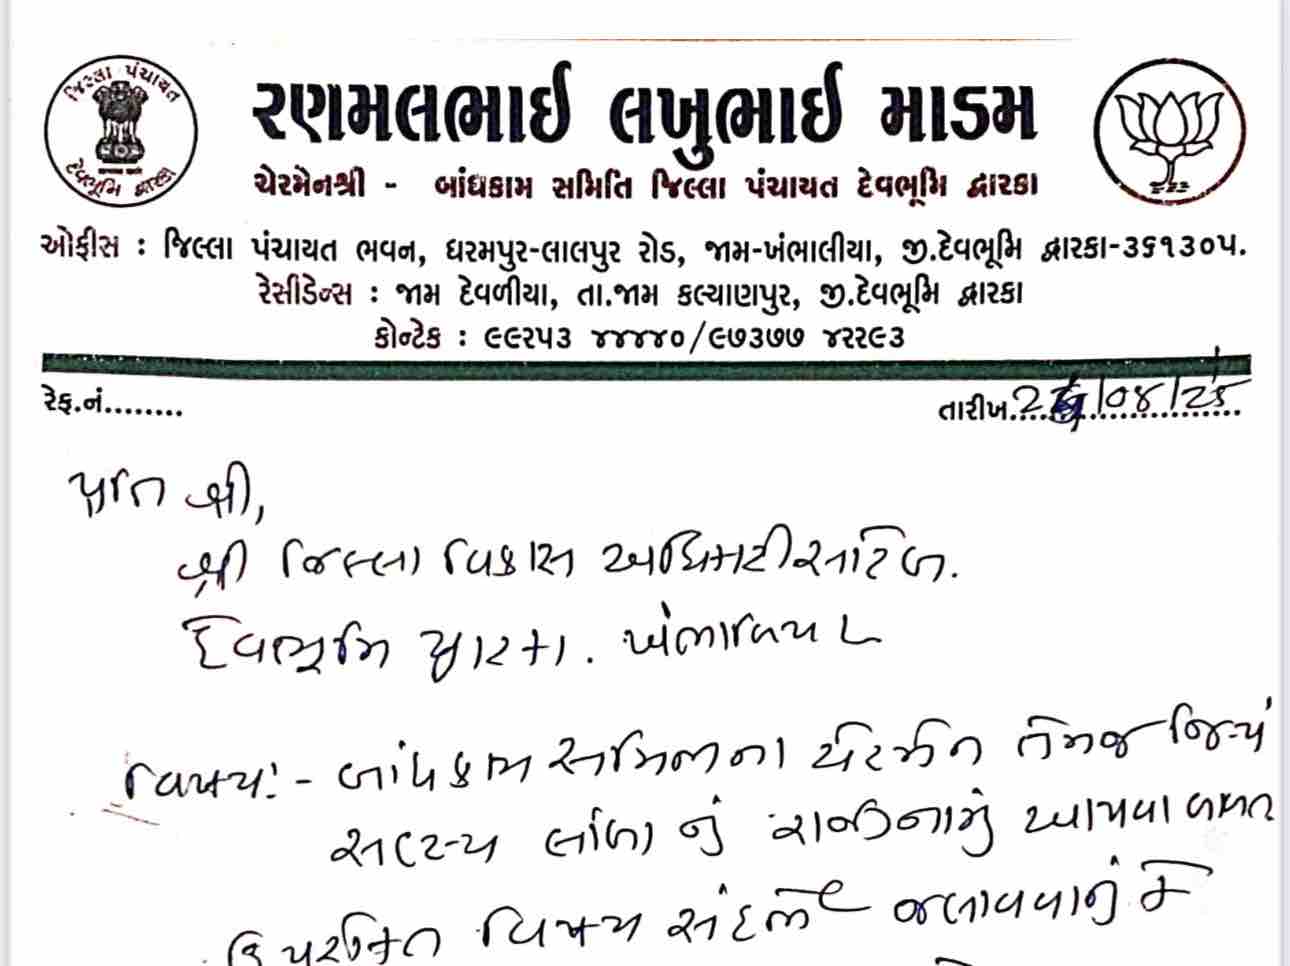 જિલ્લા પંચાયત
દેવભૂમિ દ્વારકા
રણમલભાઈ લખુભાઈ માડમ
ચેરમેનશ્રી - બાંધકામ સમિતિ જિલ્લા પંચાયત દેવભૂમિ દ્વારકા
ઓફીસ : જિલ્લા પંચાયત ભવન, ધરમપુર-લાલપુર રોડ, જામ-ખંભાલીયા, જી.દેવભૂમિ દ્વારકા-૩૬૧૩૦૫.
રેસીડેન્સ : જામ દેવળીયા, તા.જામ કલ્યાણપુર, જી.દેવભૂમિ દ્વારકા
કોન્ટેક : ૯૯૨૫૩ ૪૪૪૪૦/૯૭૩૭૭ ૪૨૨૯૩
રેફ.નં........
તારીખ
પ્રતિ શ્રી,
શ્રી જિલ્લા વિકાસ અધિકારી
દેવભૂમિ દ્વારકા.
વિષય:- બાંધકામ સમિતિના ચેરમેન તેમજ
સદસ્ય નું રાજીનામું આપવા બાબત
ઉપરોક્ત વિષય સંદર્ભે જણાવવાનું કે